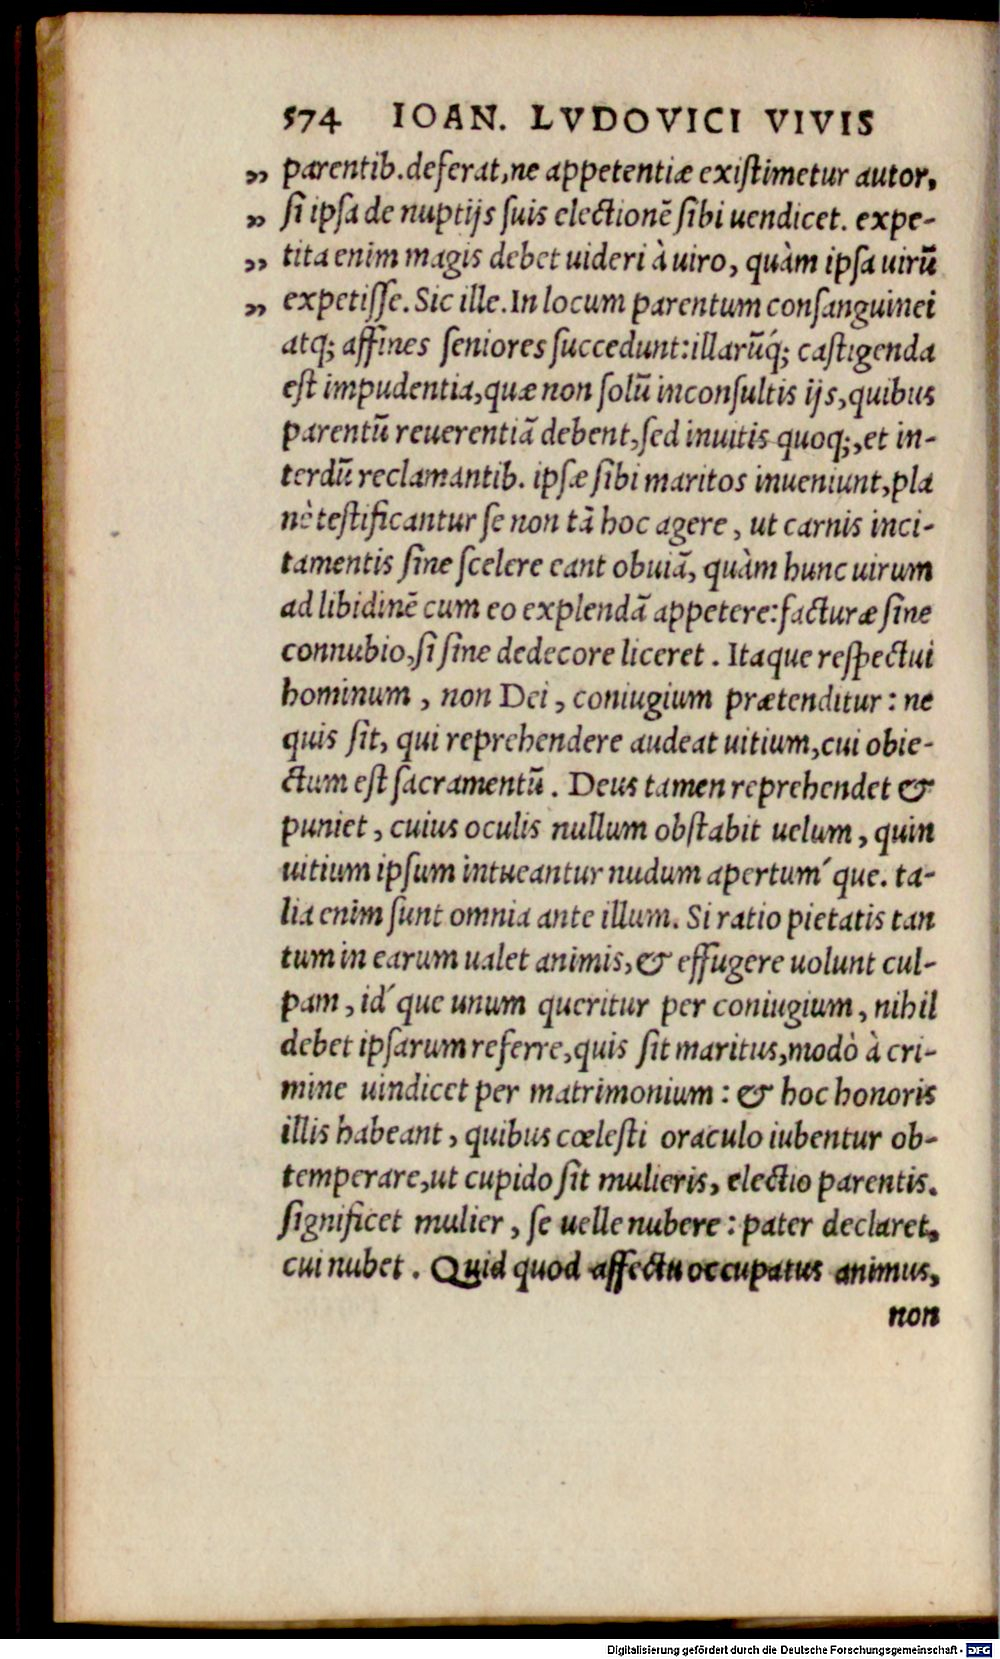 574 IOAN. LVDOVICI VIVIS
„ parentib. deferat, ne appetentiæ exiſtimetur autor,
„ ſi ipſa de nuptijs ſuis electionē ſibi uendicet. expe-
„ tita enim magis debet uideri à uiro, quàm ipſa uirū
„ expetiſſe. Sic ille. In locum parentum conſanguinei
atq; affines ſeniores ſuccedunt: illarūq́; caſtigenda
eſt impudentia, quæ non ſolū inconſultis ijs, quibus
parentū reuerentiā debent, ſed inuitis quoq;, et in-
terdū reclamantib. ipſæ ſibi maritos inueniunt, pla
nè teſtificantur ſe non tā hoc agere, ut carnis inci-
tamentis ſine ſcelere eant obuiā, quàm hunc uirum
ad libidinē cum eo explendā appetere: facturæ ſine
connubio, ſi ſine dedecore liceret. Itaque reſpectui
hominum, non Dei, coniugium prætenditur: ne
quis ſit, qui reprehendere audeat uitium, cui obie-
ctum eſt ſacramentū. Deus tamen reprehendet &
puniet, cuius oculis nullum obſtabit uelum, quin
uitium ipſum intueantur nudum apertum´que. ta-
lia enim ſunt omnia ante illum. Si ratio pietatis tan
tum in earum ualet animis, & effugere uolunt cul-
pam, id´que unum queritur per coniugium, nihil
debet ipſarum referre, quis ſit maritus, modò à cri-
mine uindicet per matrimonium: & hoc honoris
illis habeant, quibus cœleſti oraculo iubentur ob-
temperare, ut cupido ſit mulieris, electio parentis.
ſignificet mulier, ſe uelle nubere: pater declaret,
cui nubet. Quid quod affectu occupatus animus,
non
Digitalisierung gefördert durch die Deutsche Forschungsgemeinschaft - DFG